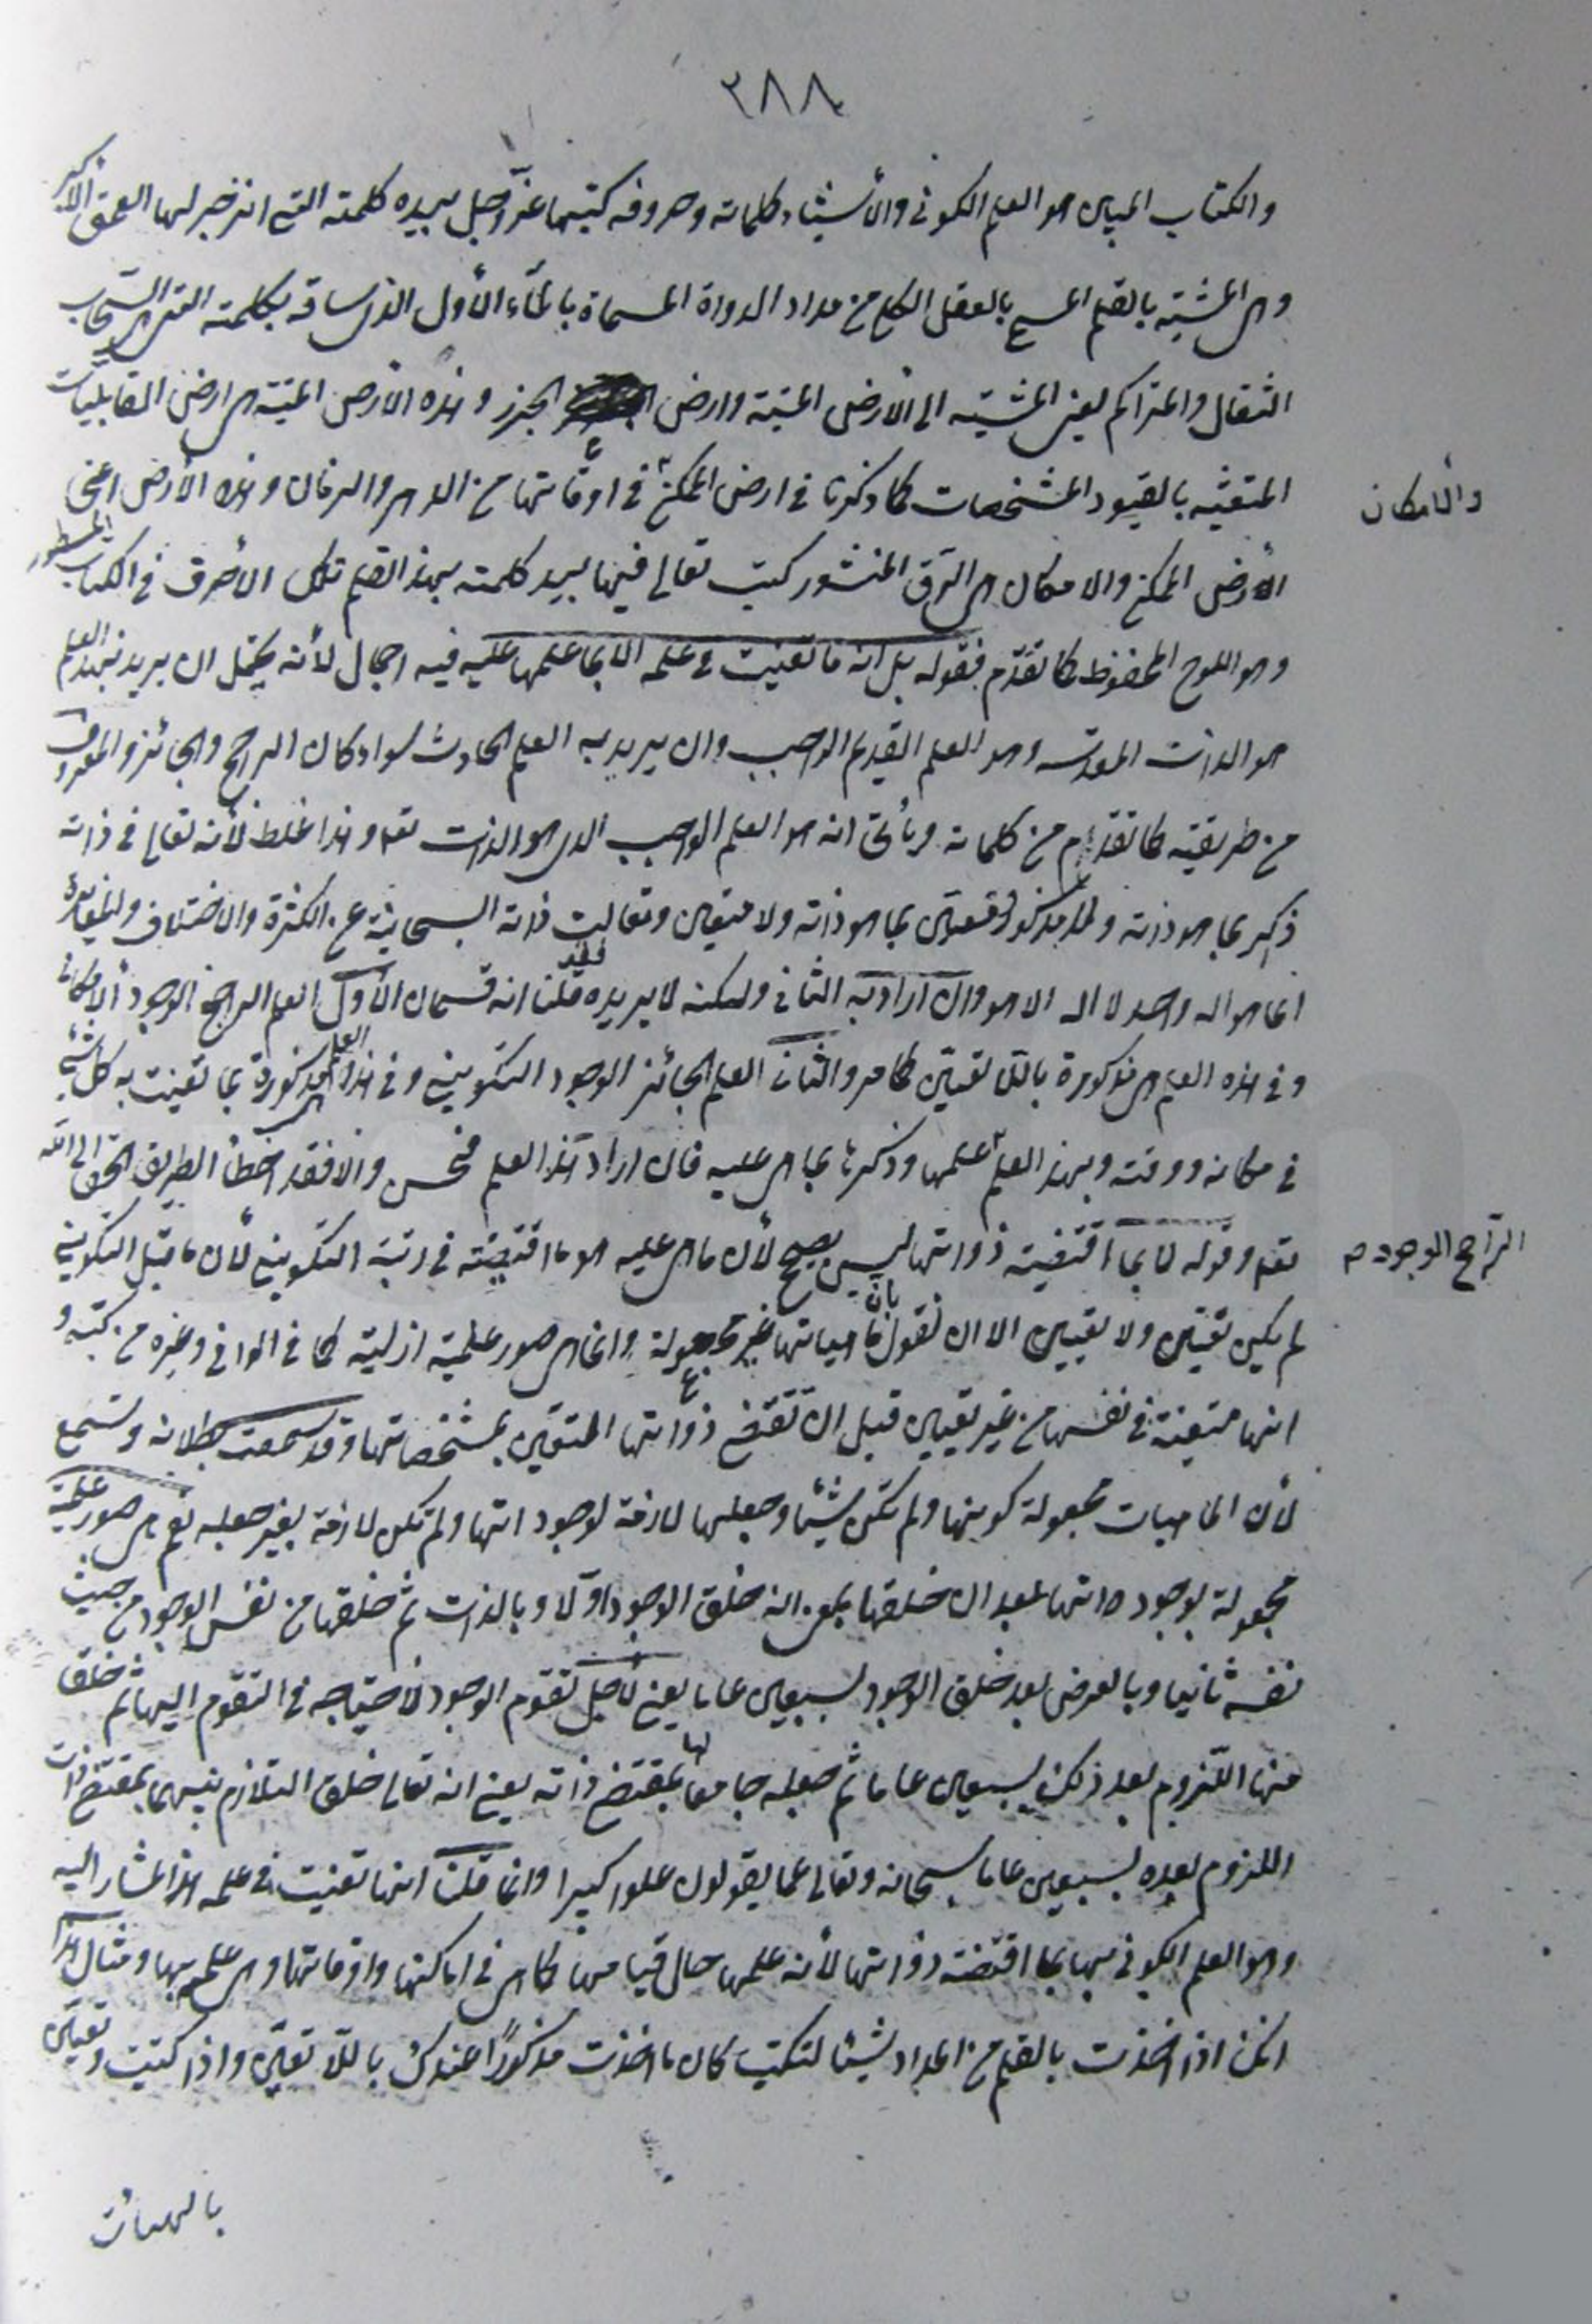 ٢٨٨
والكتاب المبين هو العلم الكوني والأشياء كلماته وحروفه كتبها عزّ وجل بيده كلمته التي انزجر لها العمق الأكبر
وهي المشية بالقلم المسمى بالعقل الكلي من مداد الدواة المسماة بالمآء الأول الذي ساقه بكلمته التي هي السّحاب
الثقال والمتراكم يعني المشية الى الأرض الميتة وارض الجرز وهذه الأرض الميتة هي ارض القابليّات
المتعينة بالقيود المشخصات كما ذكرنا في ارض الممكن في اوقاتها من الدهر والزمان وهذه الأرض اعني
والأمكان
الأرض الممكن والامكان هي الرّق المنشور كتب تعالى فيها بيد كلمته بهذا القلم تلك الأحرف في الكتاب المسطور
وهو اللوح المحفوظ كما تقدّم فقوله بل انه ما تعينت في علمه الا بما علمها عليه فيه اجمال لأنه يحتمل ان يريد بهذا العلم
هو الذات المقدسه وهو العلم القديم الواجب وان يريد به العلم الحادث سواء كان الراجح والجائز والمعروف
من طريقته كما تقدم من كلماته ويأتي انه هو العلم الواجب الذي هو الذات تعه وهذا غلط لأنه تعالى في ذاته
ذكر بما هو ذاته ولا مذكور ومتعين بما هو ذاته ولا متعين وتعالت ذاته السبحانية عن الكثرة والاختلاف والمغايرة
انما هو اله واحد لا اله الا هو وان اراد به الثاني ولكنه لا يريده فقد قلنا انه قسمان الأول العلم الراجح الوجود الأمكاني
وفي هذه العلم هي مذكورة باللّا تعيّن كما مر والثاني العلم الجائز الوجود التكويني وفي هذا العلم هي مذكورة بما تعينت به كل شئ
في مكانه ووقته وبهذا العلم علمها وذكرها بما هي عليه فان اراد هذا العلم فحسن والا فقد اخطأ الطريق الحق الى الله
تعه وقوله لما بما اقتضيته ذواتها ليس بصحيح لأن ما هي عليه هو ما اقتضته في رتبة التكويني لأن ما قبل التكويني
الرّاجح الوجود م
لم يكن تعيّن ولا تعيين الا ان نقول بأن ماهياتها غير مجعولة وانما هي صور علمية ازلية كما في الوافي وغيره من كتبه و
انها متعينة في نفسها من غير تعيين قبل ان تقتضي ذواتها المتعيّن بمشخصاتها وقد سمعت بطلانه وتسمع
لأن الماهيات مجعولة كونها ولم تكن شيئا وجعلها لازمة لوجوداتها ولم تكن لازمة بغير جعله نعم هي صور علمية
مجعولة بوجوداتها بعد ان خلقها بمعنى انه خلق الوجود اوّلا وبالذات ثم خلقها من نفس الوجود من حيث
نفسه ثانيا وبالعرض بعد خلق الوجود بسبعين عاما يعني لأجل تقوم الوجود لأحتياجه في التقوم اليها ثم خلق
منها اللّزوم بعد ذلك بسبعين عاما ثم جعله جامعا لها بمقتضى ذاته يعني انه تعالى خلق التلازم بينهما بمقتضى ذات
اللزوم بعده بسبعين عاما سبحانه وتعالى عما يقولون علوا كبيرا وانما قلنا انها تعينت في علمه هذا المشار اليه
وهو العلم الكوني بها بما اقتضته ذواتها لأنه علمها حال قيامها كما هي في اماكنها واوقاتها وهي علمه بها ومثال هذا
انك اذا اخذت بالقلم من المداد شيئا لتكتب كان ما اخذت مذكورًا عندك باللّا تعيّن واذا كتبت وتعين
بالهيئات